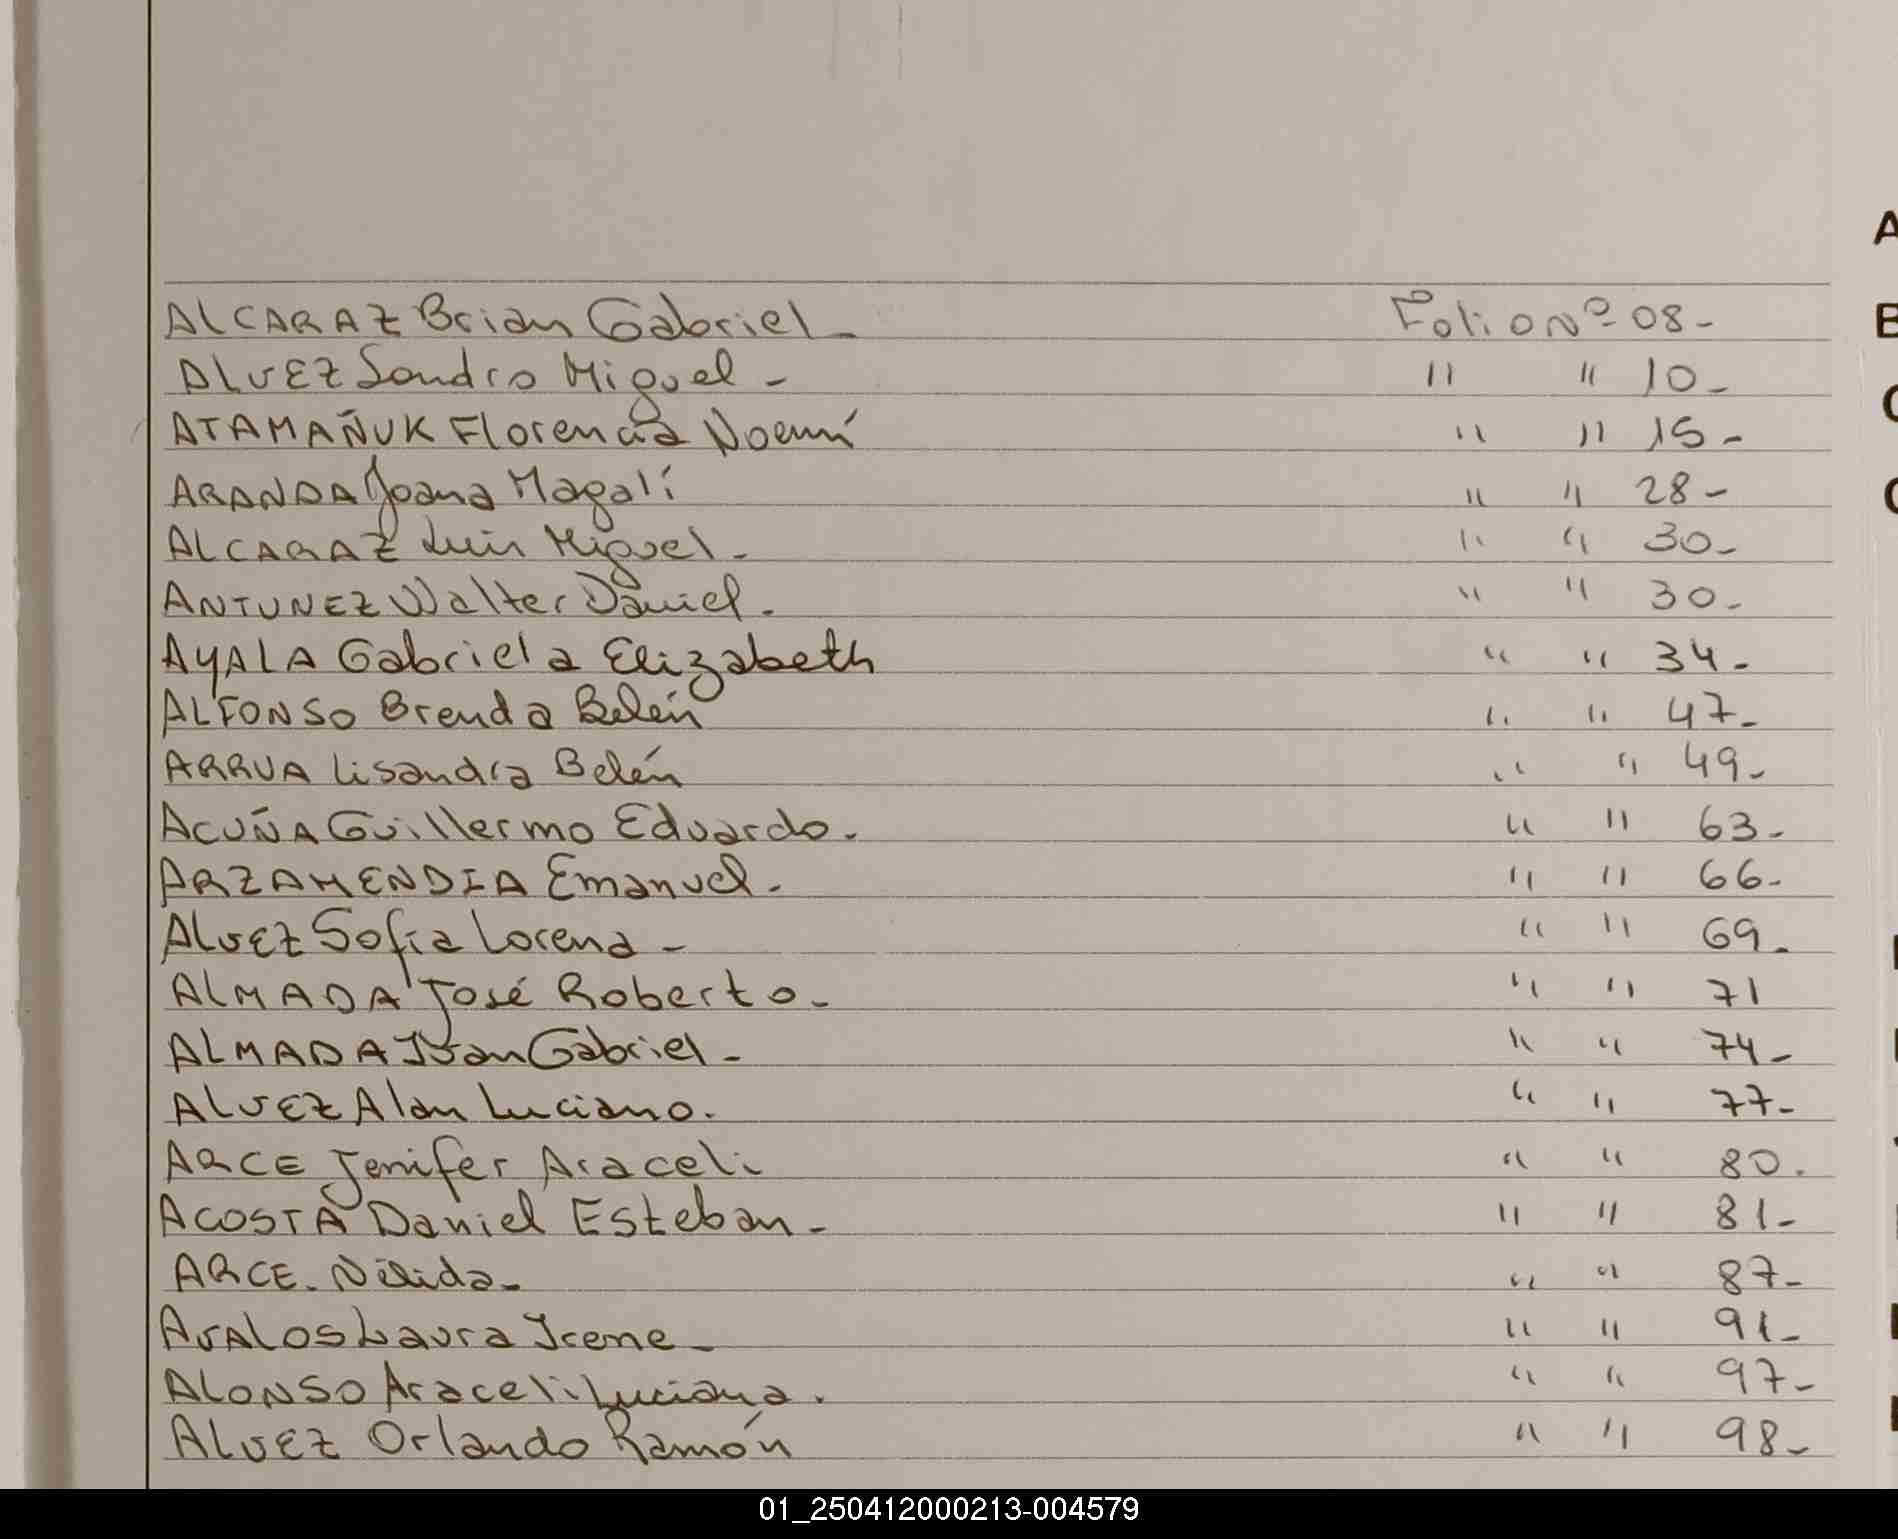 A
ALCARAZ Brian Gabriel - Folio Nº 08-
B
ALVEZ Sandro Miguel - " " 10-
C
ATAMAÑUK Florencia Noemí " " 15-
ARANDA Joana Magalí " " 28-
ALCARAZ Luis Miguel - " " 30-
ANTUNEZ Walter Daniel. " " 30-
AYALA Gabriela Elizabeth " " 34-
ALFONSO Brenda Belén " " 47-
ARRUA Lisandra Belén " " 49-
ACUÑA Guillermo Eduardo. " " 63-
ARZAMENDIA Emanuel. " " 66-
ALVEZ Sofía Lorena - " " 69-
ALMADA José Roberto - " " 71
ALMADA Juan Gabriel - " " 74-
ALVEZ Alan Luciano. " " 77-
ARCE Jenifer Araceli " " 80.
ACOSTA Daniel Esteban - " " 81-
ARCE. Nélida - " " 87-
AVALOS Laura Irene - " " 91-
ALONSO Araceli Luciana. " " 97-
ALVEZ Orlando Ramón " " 98-
01_250412000213-004579